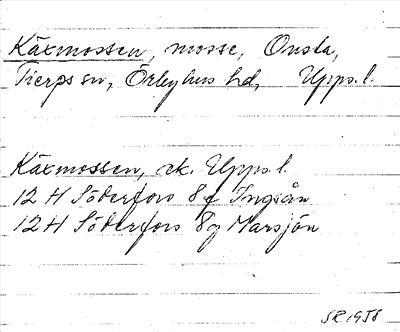 Käxmossen, mosse, Onsla,
Tierps sn, Örbyhus hd, Upps. l.
Käxmossen, ek. Upps. l.
12 H Söderfors 8 f Ingsån
12 H Söderfors 8 g Marsjön
SR 1958